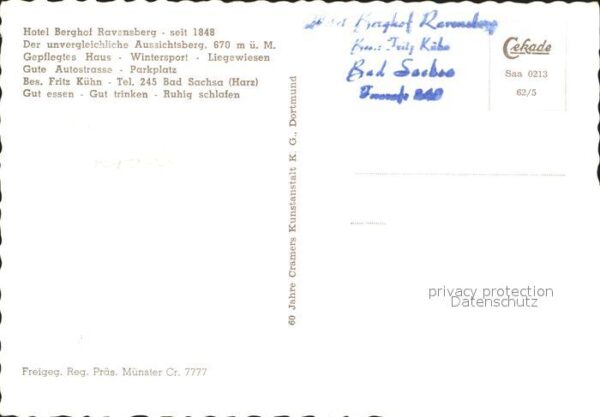 Hotel Berghof Ravensberg · seit 1848
Der unvergleichliche Aussichtsberg. 670 m ü. M.
Gepflegtes Haus · Wintersport · Liegewiesen
Gute Autostrasse · Parkplatz
Bes. Fritz Kühn · Tel. 245 Bad Sachsa (Harz)
Gut essen · Gut trinken · Ruhig schlafen
60 Jahre Cramers Kunstanstalt K. G., Dortmund
Hotel Berghof Ravensberg
Fritz Kühn
Bad Sachsa
Cekade
Saa 0213
62/5
privacy protection
Datenschutz
Freigeg. Reg. Präs. Münster Cr. 7777